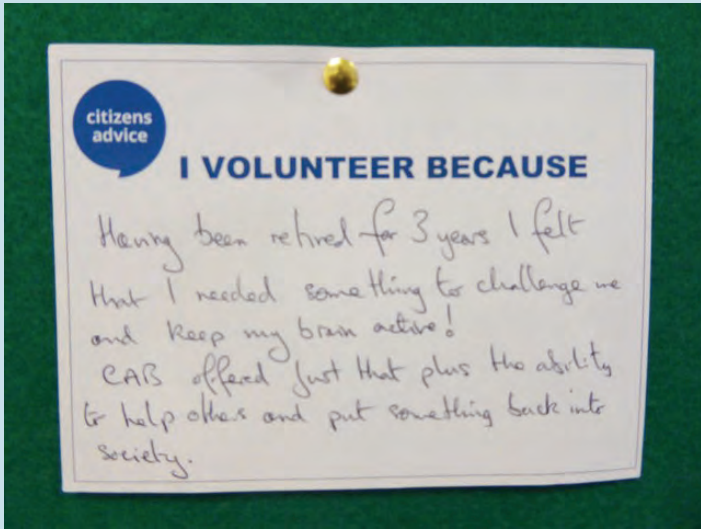 citizens
advice
I VOLUNTEER BECAUSE
Having been retired for 3 years I felt
that I needed something to challenge me
and keep my brain active!
CAB offered just that plus the ability
to help others and put something back into
society.